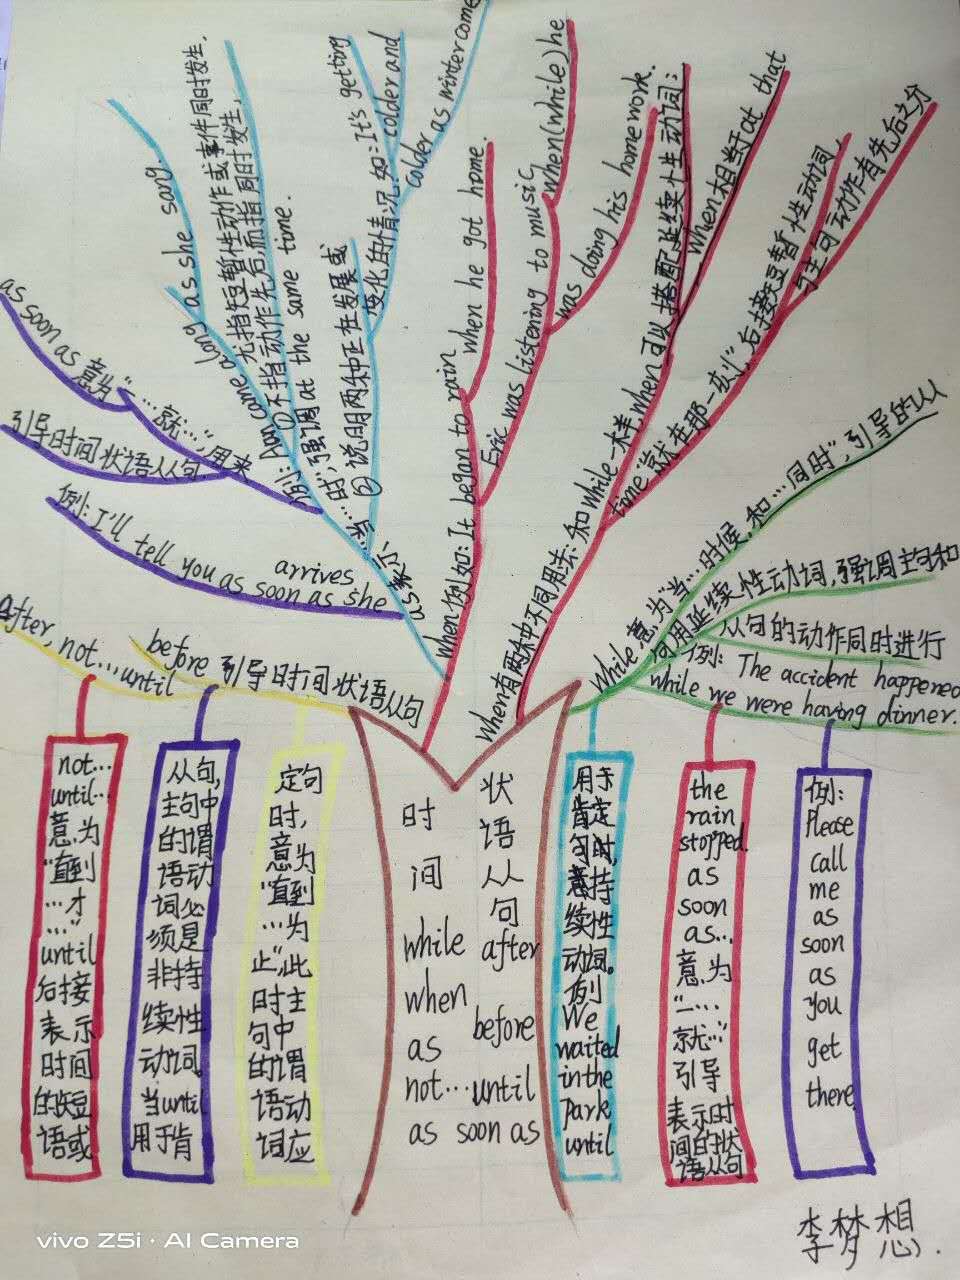 as soon as 意为“…就…”,用来
引导时间状语从句
例: I'll tell you as soon as she
arrives
例: Ann came along as she song.
as表示
“当…时”,强调at the same time.
①不指动作先后,而指同时发生,
尤指短暂性动作或事件同时发生.
②说明两种正在发展或
变化的情况.如:It's getting
colder and
colder as winter come
when例如:It began to rain when he got home.
Eric was listening to music when(while) he
was doing his home work.
When有两种不同用法:和while一样,when可以搭配延续性动词;
when相当于at that
time“就在那一刻”,后接短暂性动词,
引主句动作有先后之分
While意为“当…时候,和…同时”,引导的从
句用延续性动词,强调主句和
从句的动作同时进行
例: The accident happened
while we were having dinner.
after, not…until
before 引导时间状语从句
not…
until…
意为
“直到
…才
…”
until
后接
表示
时间
的短
语或
从句,
主句中
的谓
语动
词必
须是
非持
续性
动词.
当until
用于肯
定句
时,
意为
“直到
…为
止”,此
时主
句中
的谓
语动
词应
时间
状语从句
while
when
as
not…until
as soon as
after
before
用于
肯定
句时,
意持
续性
动词.
例
We
waited
in the
park
until
the
rain
stopped.
as
soon
as…
意为
“一…
就…”
引导
表示时
间的状
语从句
例:
Please
call
me
as
soon
as
you
get
there
李梦想.
vivo Z5i · AI Camera